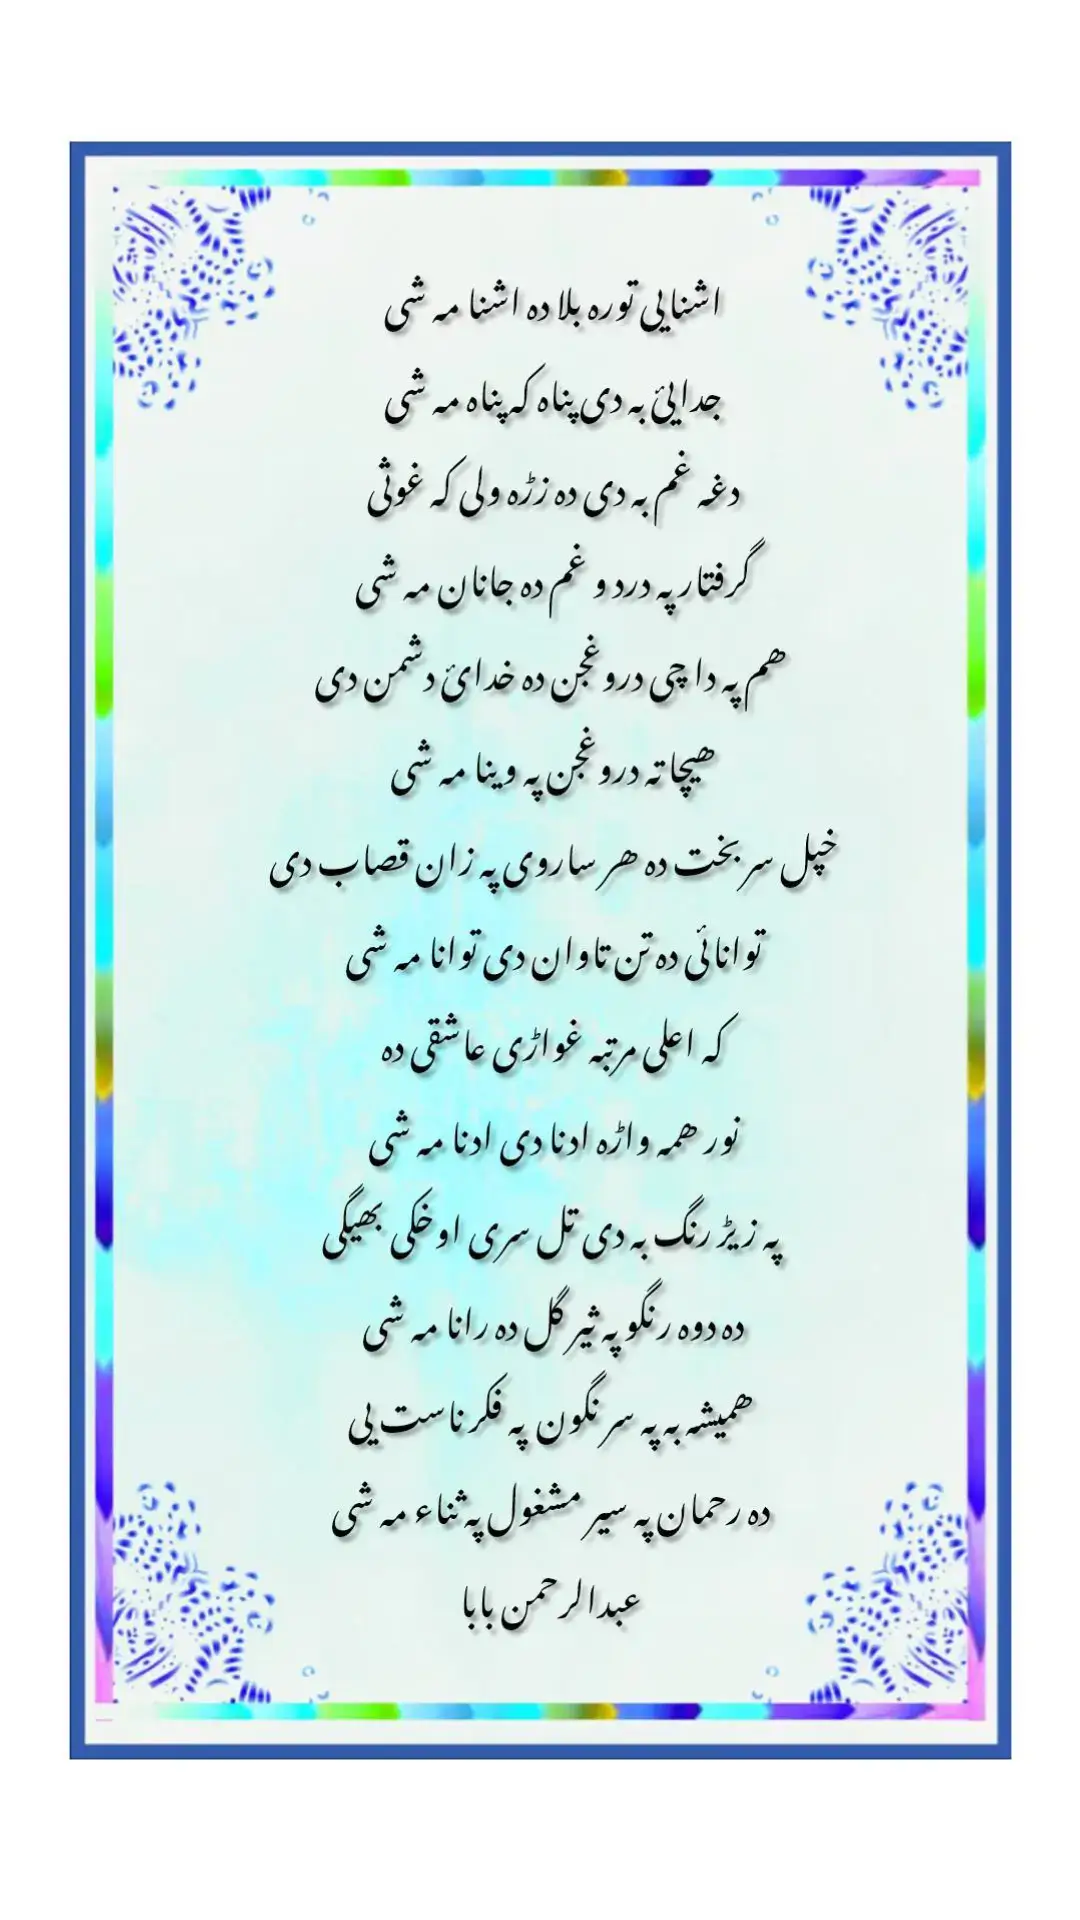 اشنایی توره بلا ده اشنا مه شی
جدایئ به دی پناه که پناه مه شی
دغه غم به دی ده زڑه ولی که غوثی
گرفتار په درد و غم ده جانان مه شی
هم په دا چی دروغجن ده خدائ دشمن دی
هیچا ته دروغجن په وینا مه شی
خپل سر بخت ده هر ساروی په زان قصاب دی
توانائی ده تن تاوان دی توانا مه شی
که اعلی مرتبه غواڑی عاشقی ده
نور همه واڑه ادنا دی ادنا مه شی
په زیڑ رنگ به دی تل سری اوخکی بهیگی
ده دوه رنگو په ثیر گل ده رانا مه شی
همیشه به په سر نگون په فکر ناست یی
ده رحمان په سیر مشغول په ثناء مه شی
عبدالرحمن بابا